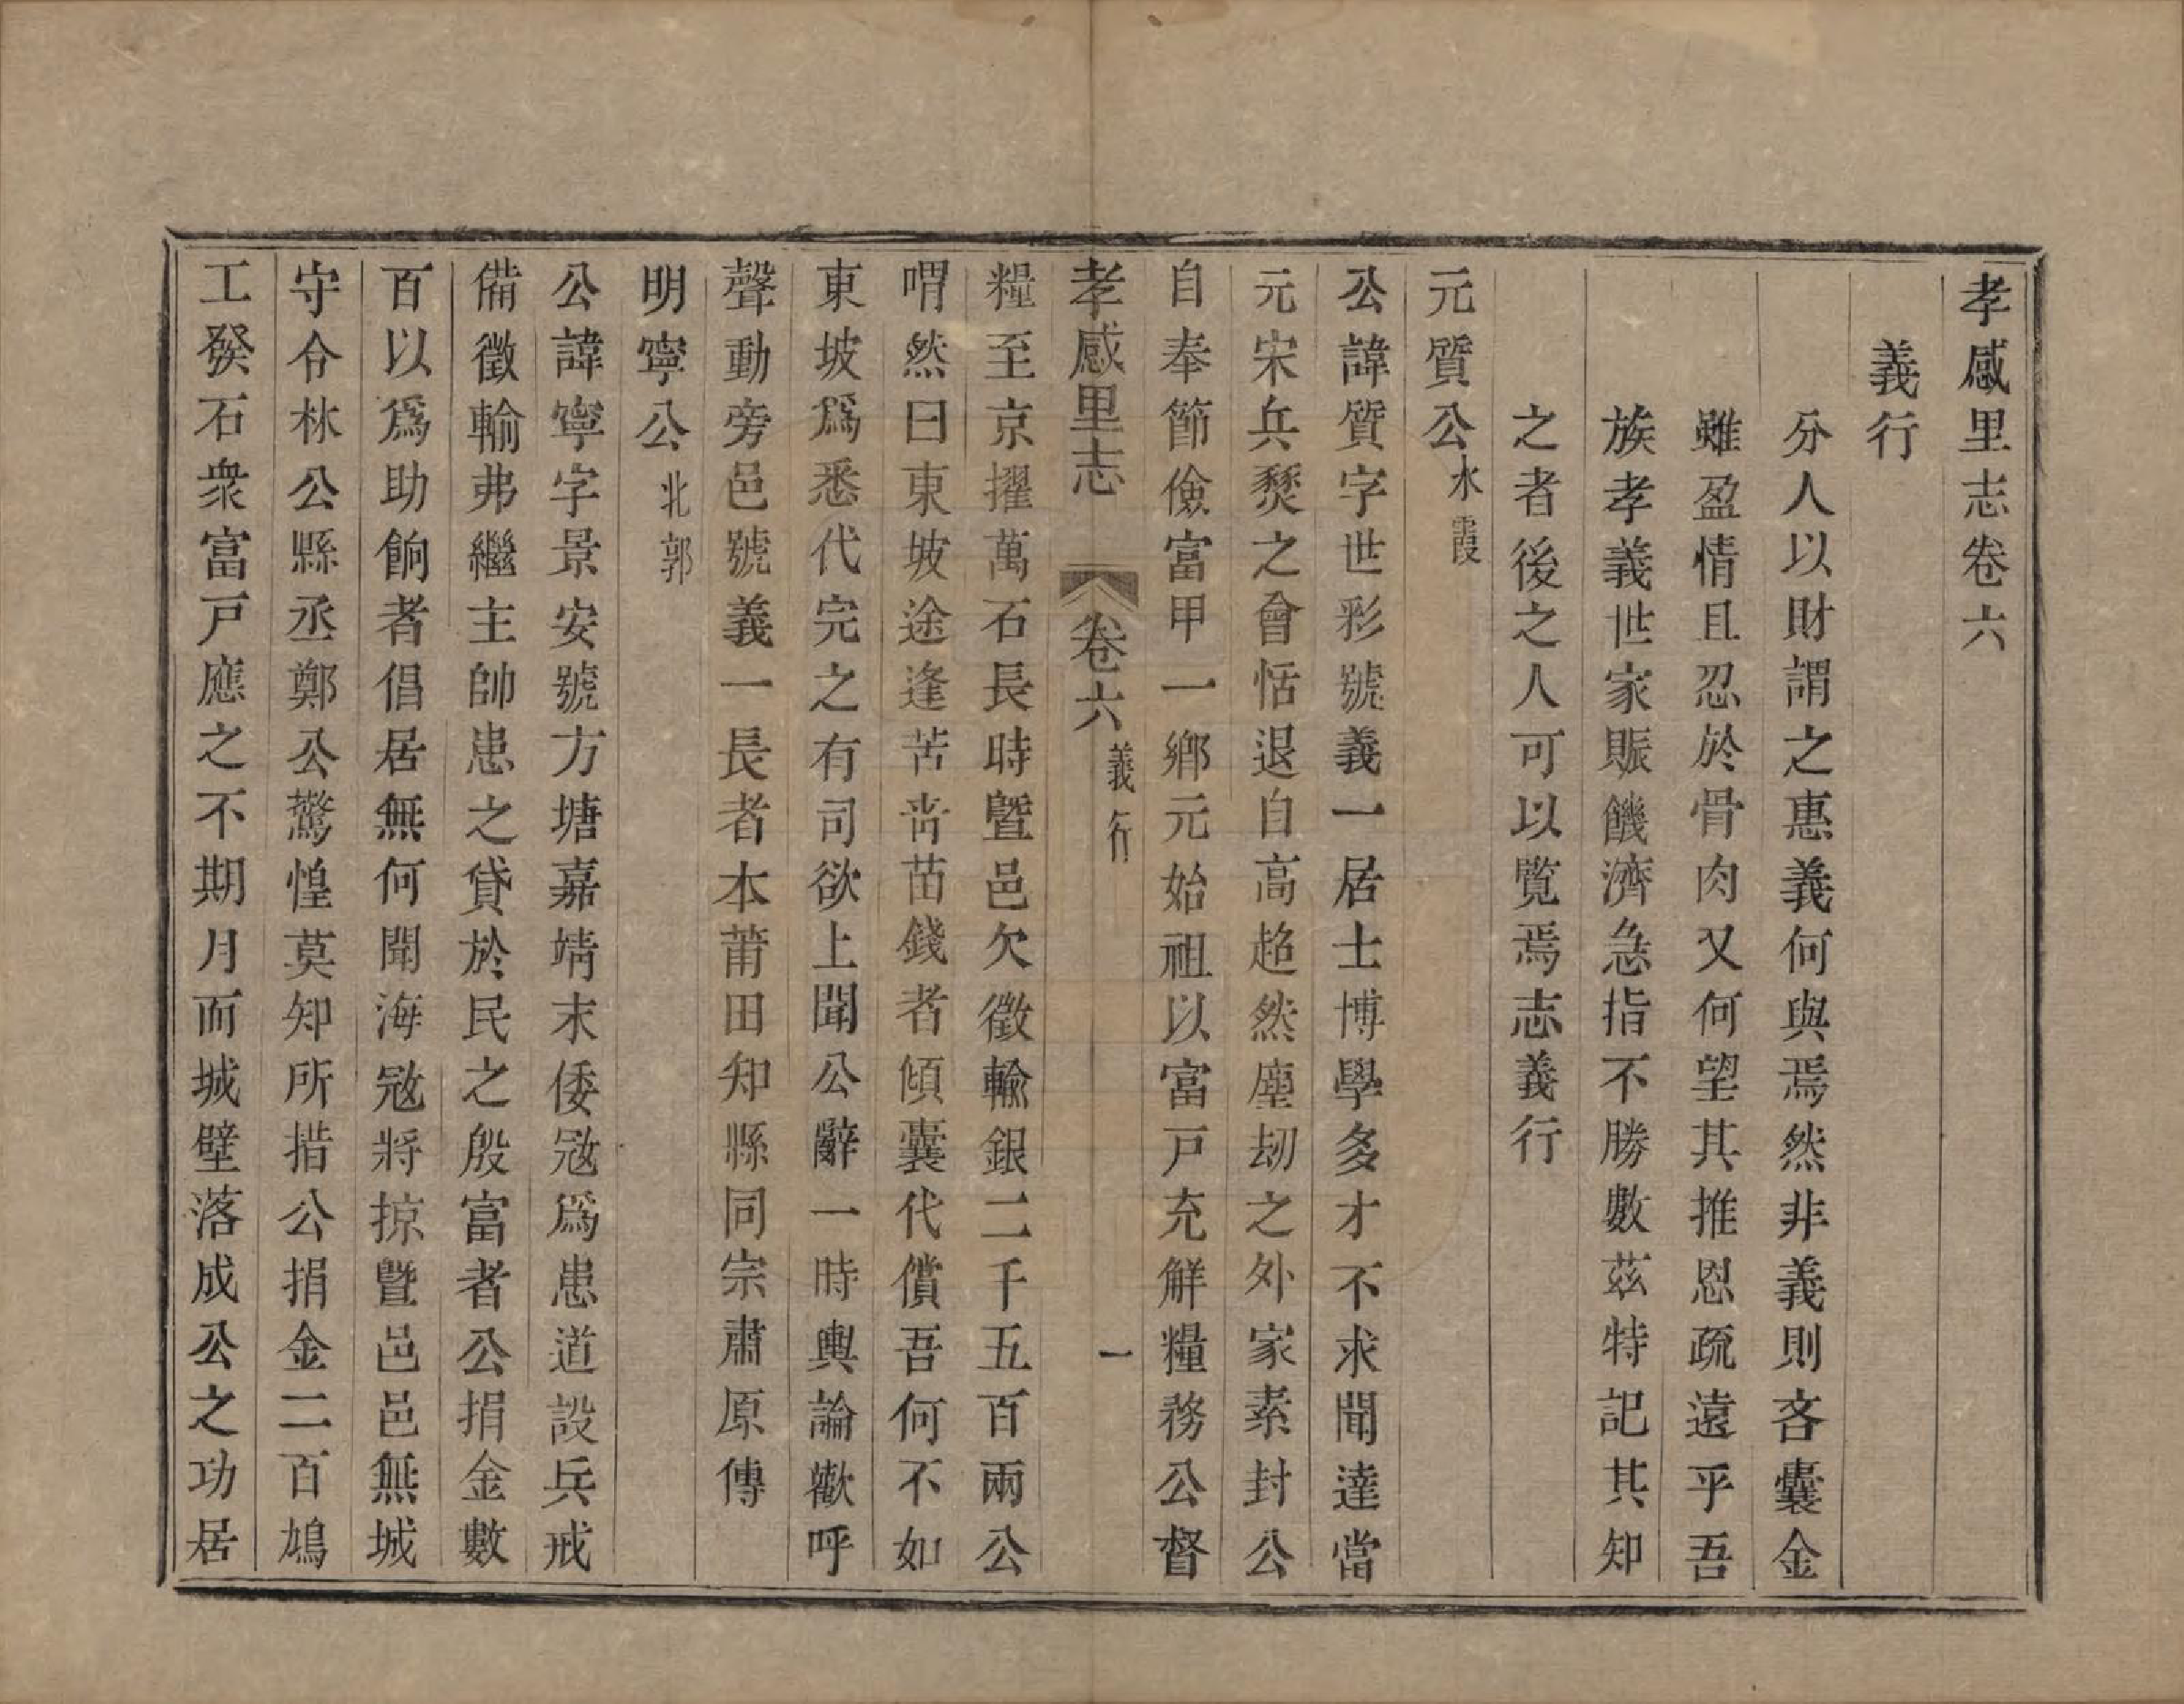 孝感里志卷六
義行
分人以財謂之惠義何與焉然非義則吝囊金
雖盈情且忍於骨肉又何望其推恩疏遠乎吾
族孝義世家賑饑濟急指不勝數茲特記其知
之者後之人可以覽焉志義行
元質公水霞
公諱質字世彩號義一居士博學多才不求聞達當
元宋兵燹之會恬退自高超然塵刧之外家素封公
自奉節儉富甲一鄉元始祖以富戶充解糧務公督
孝感里志 卷六 義行 一
糧至京擢萬石長時暨邑欠徵輸銀二千五百兩公
喟然曰東坡途逢苦啇苗錢者傾囊代償吾何不如
東坡爲悉代完之有司欲上聞公辭一時輿論歡呼
聲動旁邑號義一長者本莆田知縣同宗肅原傳
明寧公北郭
公諱寧字景安號方塘嘉靖末倭寇爲患道設兵戒
備徵輸弗繼主帥患之貸於民之殷富者公捐金數
百以爲助餉者倡居無何聞海寇將掠暨邑邑無城
守令林公縣丞鄭公驚惶莫知所措公捐金二百鳩
工發石衆富戶應之不期月而城壁落成公之功居